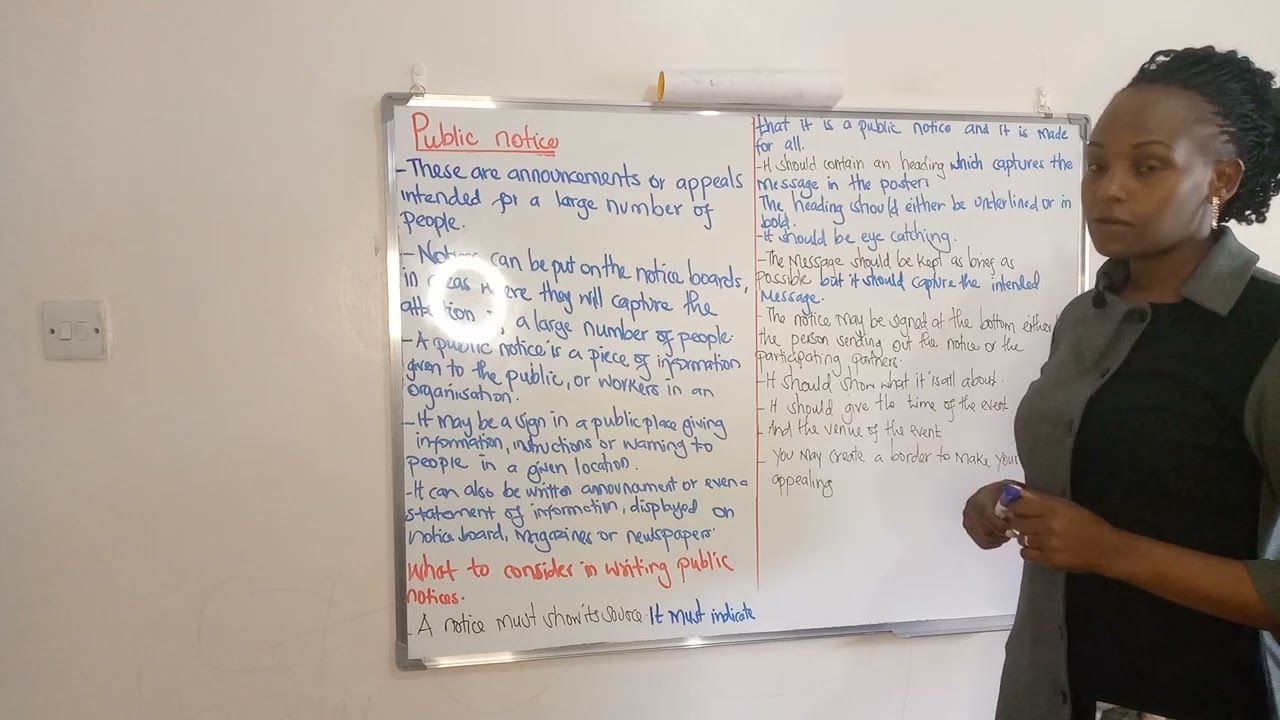 Public notice
- These are announcements or appeals
intended for a large number of
people.
- Notices can be put on the notice boards,
in areas where they will capture the
attention a large number of people.
- A public notice is a piece of information
given to the public, or workers in an
organisation.
- It may be a sign in a public place giving
information, instructions or warning to
people in a given location.
- It can also be written announcment or even a
statement of information, displayed on
notice board, magazines or newspapers.
What to consider in writing public
notices.
- A notice must show its source It must indicate
that it is a public notice and it is made
for all.
- It should contain an heading which captures the
message in the posters
The heading should either be underlined or in
bold.
- It should be eye catching.
- The message should be kept as brief as
possible but it should capture the intended
message.
- The notice may be signed at the bottom either
the person sending out the notice or the
participating partners.
- It should show what it is all about.
- It should give the time of the event
- And the venue of the event
- You may create a border to make your
appealing